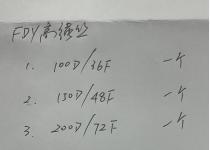 FDY高绣丝
1. 100D/36F 一个
2. 150D/48F 一个
3. 200D/72F 一个